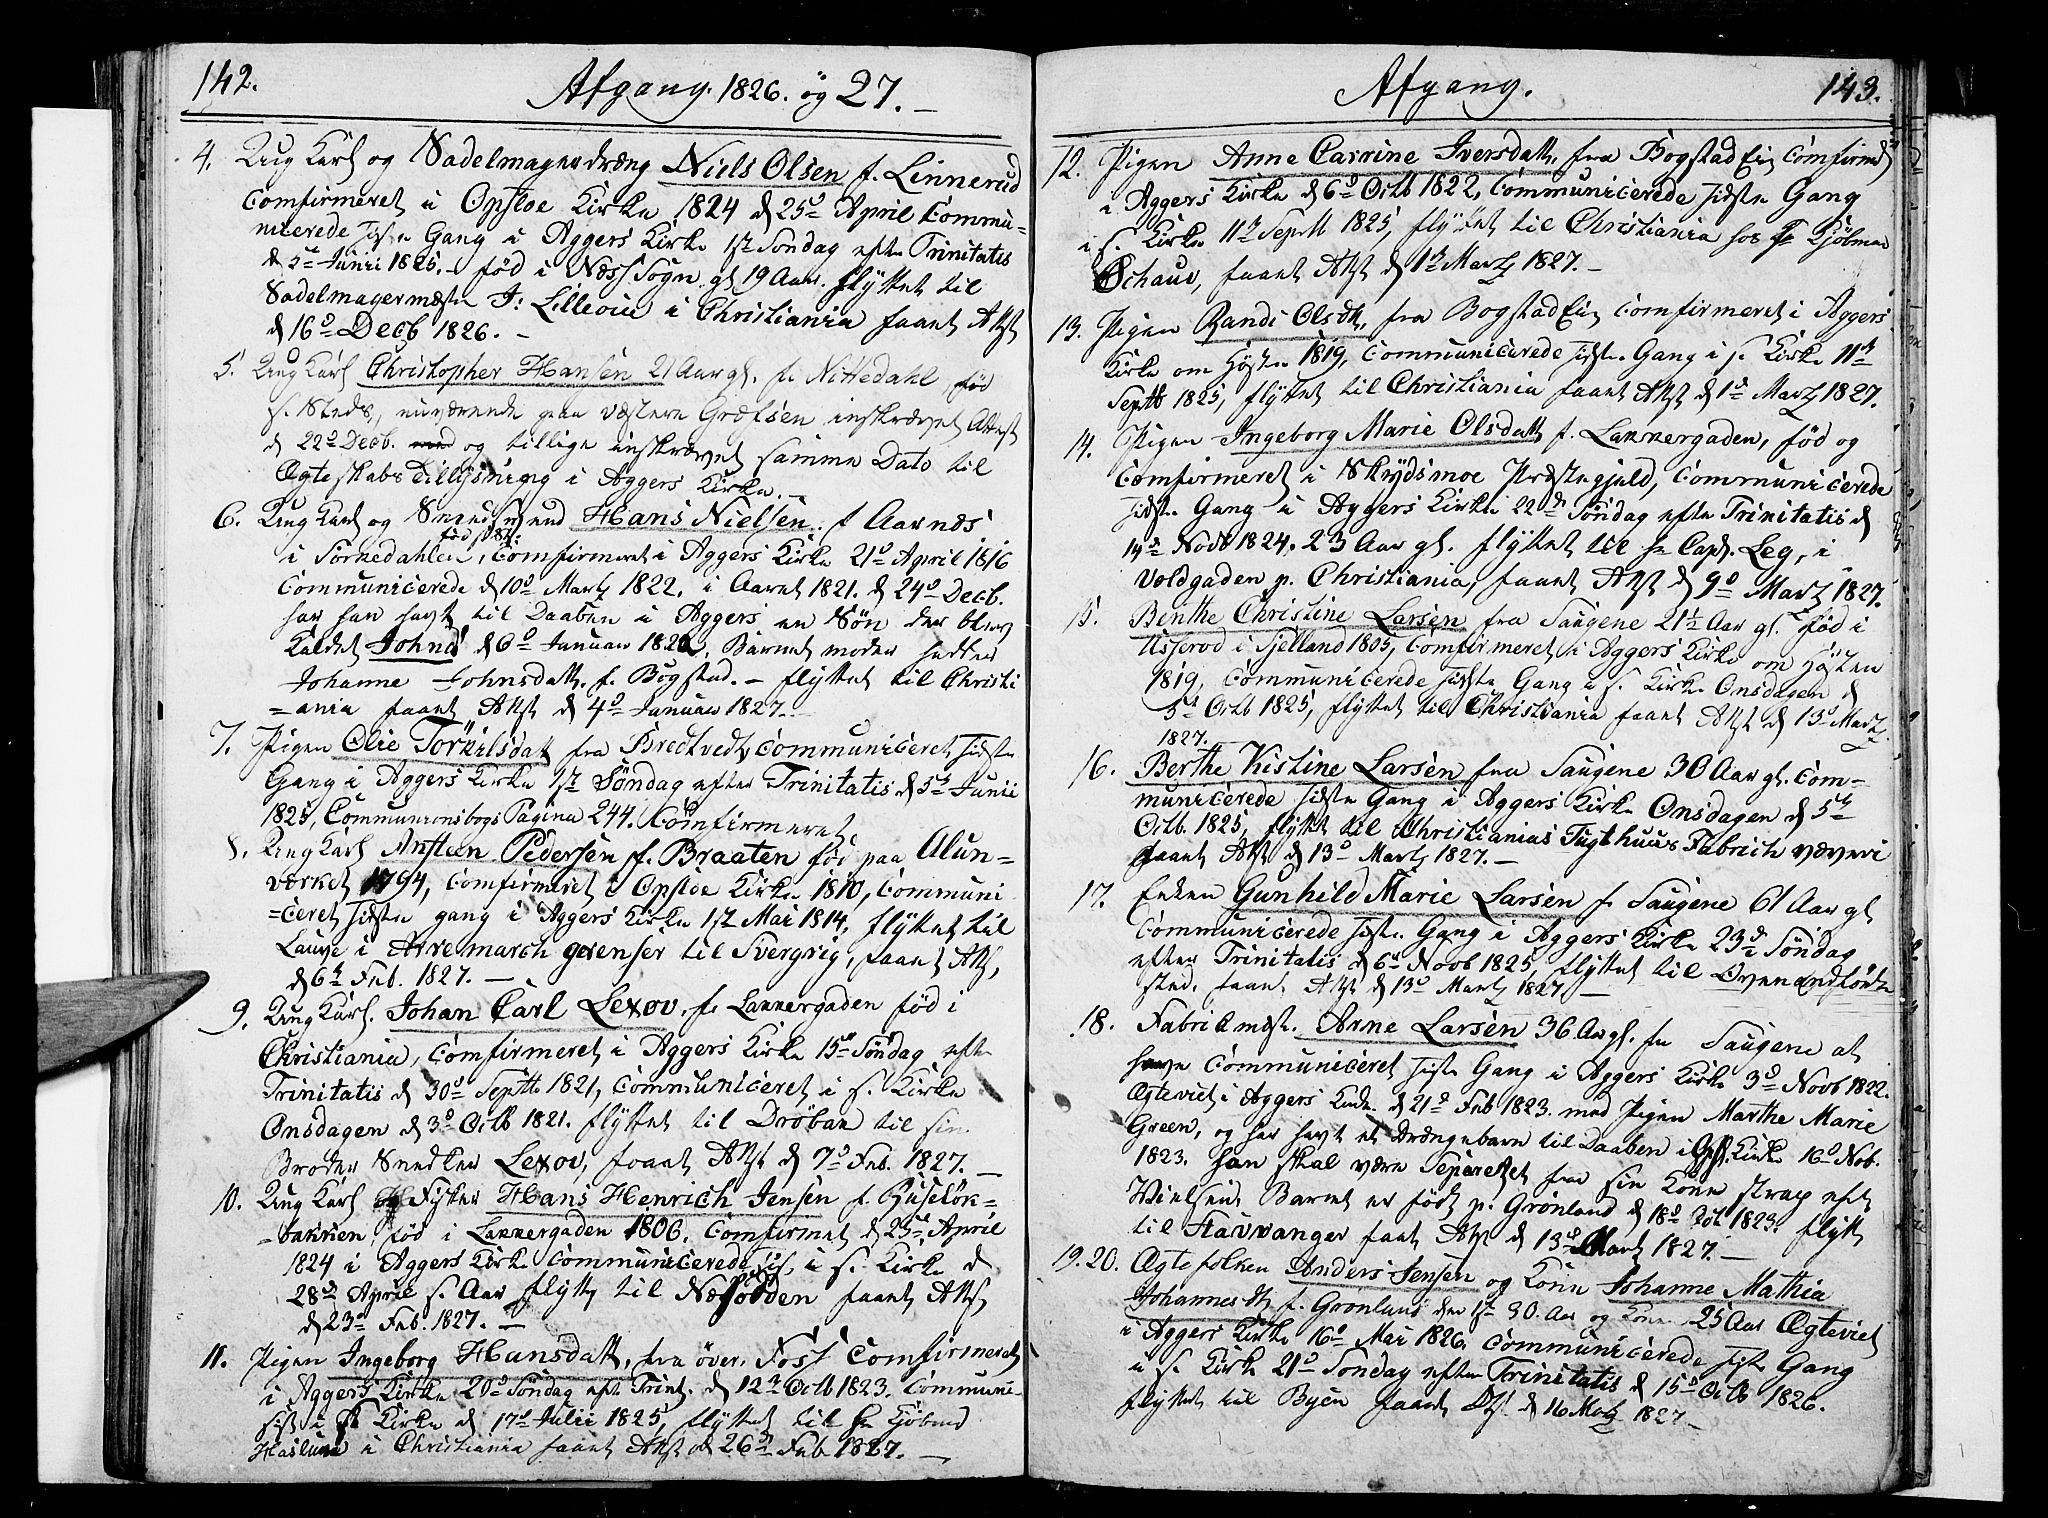 142.
Afgang. 1826. og 27.
4. Ung Karl og Sadelmagerdræng Niels Olsen f. Linnerud
Comfirmeret i Opsloe Kirke 1824 d 25d April Commu-
nicerede sidste Gang i Aggers Kirke 1st Söndag efter Trinitatis
d 5te Junii 1825. født i Næss Sogn gl 19 Aar. flyttet til
Sadelmagermester J: i Christiania faaet Attst
d 16d Decb 1826.
5. Ung Karl Christopher Hansen 21 Aar gl. f. Nittedahl, fød
s. Steds, nuværende paa vestere Grefsen inskrævet Attest
d 22d Decb. og tillige inskrævet samme Dato til
Ægteskabs Tillysning i Aggers Kirke.
6. Ung Karl og Hans Nielsen f Aarnæs
fød s. St:
i Sørkedahlen, Comfirmeret i Aggers Kirke 21d April 1816
Communicerede d 10d Martz 1822. i Aaret 1821. d 24d Decb.
har han havt til Daaben i Aggers en Søn der blev
Kaldet Johnd d 6d Januar 1822, Barnets moder hedder
Johanne Johnsdatt. f. Bogstad. flyttet til Christi
=ania faaet Attst d 4d Januar 1827.
7. Pigen Olie Törkilsdatt fra Bredtvedt, Communiceret sidste
Gang i Aggers Kirke 1st Söndag efter Trinitatis d 5te Junii
1825, Communionsbogs Pagina 244. Comfirmeret.
8. Ung Karl Ansteen Pedersen f. Braaten fød paa Alun=
værket 1794, Comfirmeret i Opsloe Kirke 1810, Communi
=ceret sidste gang i Aggers Kirke 1st Mai 1814, flyttet til
i til Svergrig, faaet Attst,
d 6te Feb. 1827.
9. Ung Karl. Johan Carl Lexov, f. Lakkergaden fød i
Christiania, Comfirmeret i Aggers Kirke 15de Söndag efter
Trinitatis d 30d Septb 1821, Communiceret i s. Kirke
Onsdagen d 3d Octb 1821. flyttet til Dröbak til sin
Broder Snedker Lexov, faaet Attst d 7d Feb. 1827.
10. Ung Karl Fisker Hans Henrich Jensen f. Ruseløk=
=bakken, fød i Lakkergaden 1806, Comfirmet d 25d April
1824 i Aggers Kirke Communicerede sist, i s. Kirke d
28d April s. Aar flytt til Næsodden faaet Attst
d 23d Feb. 1827.
11. Pigen Ingeborg Hansdatt, fra över. Foss Comfirmeret
i Aggers Kirke 20d Söndag eft Trint. d 12te Octb 1823. Communi-
sist i s. Kirke d 17d Julii 1825, flyttet til Hr Kjöbmd
i Christiania faaet Attst d 26d Feb 1827.
Afgang.
143.
12. Pigen Anne Carrine Iversdatt, fra Bogstad Eie Comfirmet
i Aggers Kirke d 6d Octb 1822, Communicerede sidste Gang
i s. Kirke 11d Septb 1825, flyttet til Christiania hos Hr Kjöbman
Schaus, faaet Attst d 1d Martz 1827.
13. Pigen Randi Olsdt, fra Bogstad Eie Comfirmeret i Aggers
Kirke om Høsten 1819, Communicerede sidste Gang i s. Kirke 11te
Septb 1825, flyttet til Christiania faaet Attst d 1d Martz 1827.
14. Pigen Ingeborg Marie Olsdatt f. Lakkergaden, fød og
Comfirmeret i Skydsmoe Præstegjeld, Communicerede
sidste Gang i Aggers Kirke 22de Söndag efter Trinitatis d
14de Novb 1824. 23 Aar gl. flyttet til Hr Capt. Leg, i
Voldgaden p. Christiania, faaet Attst d 9d Martz 1827.
15. Berthe Christine Larsen fra Saugene 21½ Aar gl. fød i
Usserod i Sjelland 1805, Comfirmeret i Aggers Kirke om Hösten
1819, Communicerede sidste Gang i s. Kirke Onsdagen d
5te Octb 1825, flyttet til Christiania faaet Attst d 13d Martz
1827.
16. Berthe Kistine Larsen fra Saugene 30 Aar gl. Com=
municerede sidste Gang i Aggers Kirke Onsdagen d 5te
Octb. 1825, flyttet til Christianias Tugthuus Fabrich væveri
faaet Attst d 13d Martz 1827.
17. Enken Gunhild Marie Larsen f. Saugene 61 Aar gl
Communicerede sidste Gang i Aggers Kirke 23de Söndag
efter Trinitatis d 6te Novb 1825, flyttet til
sted, faaet Attst d 13d Martz 1827
18. Fabrikmest. Arne Larsen 36 Aar gl. fra Saugene at
have Communiceret sidste Gang i Aggers Kirke 3d Novb 1822.
Ægteviet i Aggers Kirke d 21d Feb 1823. med Pigen Marthe Marie
Green, og har havt et Drængebarn til Daaben i Kirke 16d Nob.
1823. han skal være Separettet fra sin Kone strax eft
Vielsen Barnet er født p. Grönland d 18d Octb 1823. flytt
til Stavanger faaet Attst d 13d Mart 1827.
19. 20. Ægtefolken Anders Jensen og Kone Johanne Mathia
Johannesdtt f. Grönland den 1st 30. Aar og Kone 25 Aar Ægteviet
i Aggers Kirke 16d Mai 1826. Communicerede sidste Gang
i s. Kirke 21d Söndag efter Trinitatis d 15d Octb 1826.
flyttet til Byen faaet Attst d 16 Martz 1827